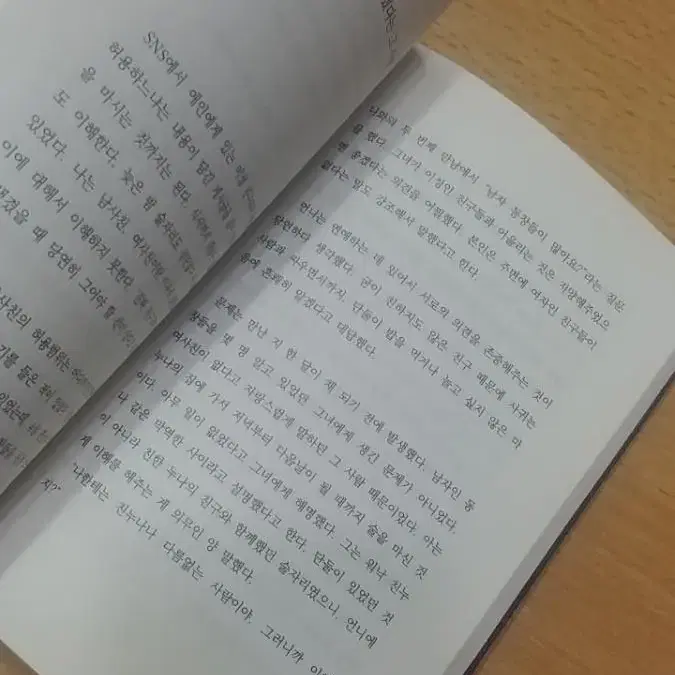 SNS에서 애인에게 있는
허용하느냐는 내용이 담긴
을 마시는 것까지는 된다
도 이해한다. 늦은 밤 술자리도
있었다. 나는 남사친 여사친이란
이에 대해서 이해하지 못한다
생겼을 때 당연히 그어야 할
사친의 허용범위는
기를 들은
있었는데
나와의 두 번째 만남에서 "남자 동창들이 많아요?"라는 질문
을 했다. 그녀가 이성인 친구들과 어울리는 것은 지양해주었으
면 좋겠다는 의견을 어필했다. 본인은 주변에 여자인 친구들이
없다는 말도 강조해서 말했다고 한다.
언니는 연애하는 데 있어서 서로의 의견을 존중해주는 것이
당연하다 생각했다. 굳이 친하지도 않은 친구 때문에 사귀는
사람과 싸우면서까지, 단둘이 밥을 먹거나 놀고 싶지 않은 마
음에 흔쾌히 알겠다고 대답했다.
문제는 만난 지 한 달이 채 되기 전에 발생했다. 남자인 동
창들을 몇 명 알고 있었던 그녀에게 생긴 문제가 아니었다.
여사친이 없다고 자랑스럽게 말하던 그 사람 때문이었다. 아는
누나의 집에 가서 저녁부터 다음날이 될 때까지 술을 마신 것
이다. 아무 일이 없었다고 그녀에게 해명했다. 그는 워낙 친누
나 같은 막역한 사이라고 설명했다고 한다. 단둘이 있었던 것
이 아니라 친한 누나의 친구와 함께했던 술자리였으니, 언니에
게 이해를 해주는 게 의무인 양 말했다.
"나한테는 친누나나 다름없는 사람이야. 그러니까
지?"